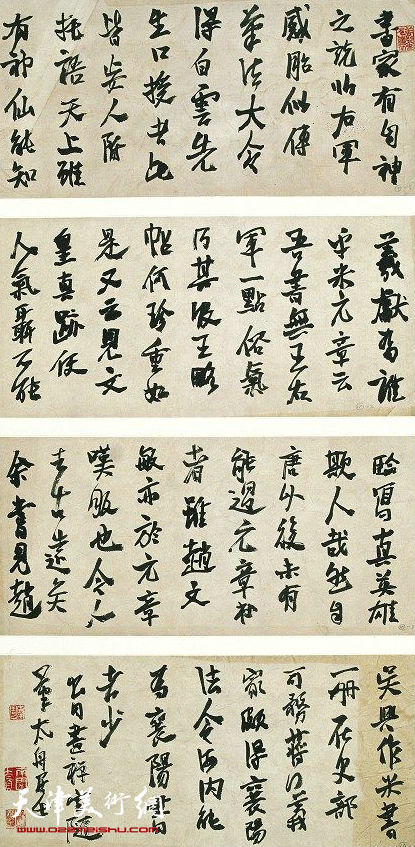 書家有自神
之說以右軍
感胎似傳
筆法大令
得白雲先
生口授者此
皆妄人附
托語天上雖
有神仙能知
羲獻為誰
乎米元章云
吾書無王右
軍一點俗氣
乃其收王略
帖何珍重如
是又云見文
皇真跡使
人氣懾不能
臨寫真英雄
欺人哉然自
唐以後未有
能過元章書
者雖趙文
敏亦於元章
嘆服也今人
去古遠矣
余嘗見趙
吳興作米書
一冊在史部
蔣行義
家頗得襄陽
法今海內能
為襄陽書
者少
畫禪隨
筆
天津美術網
www.022meishu.com